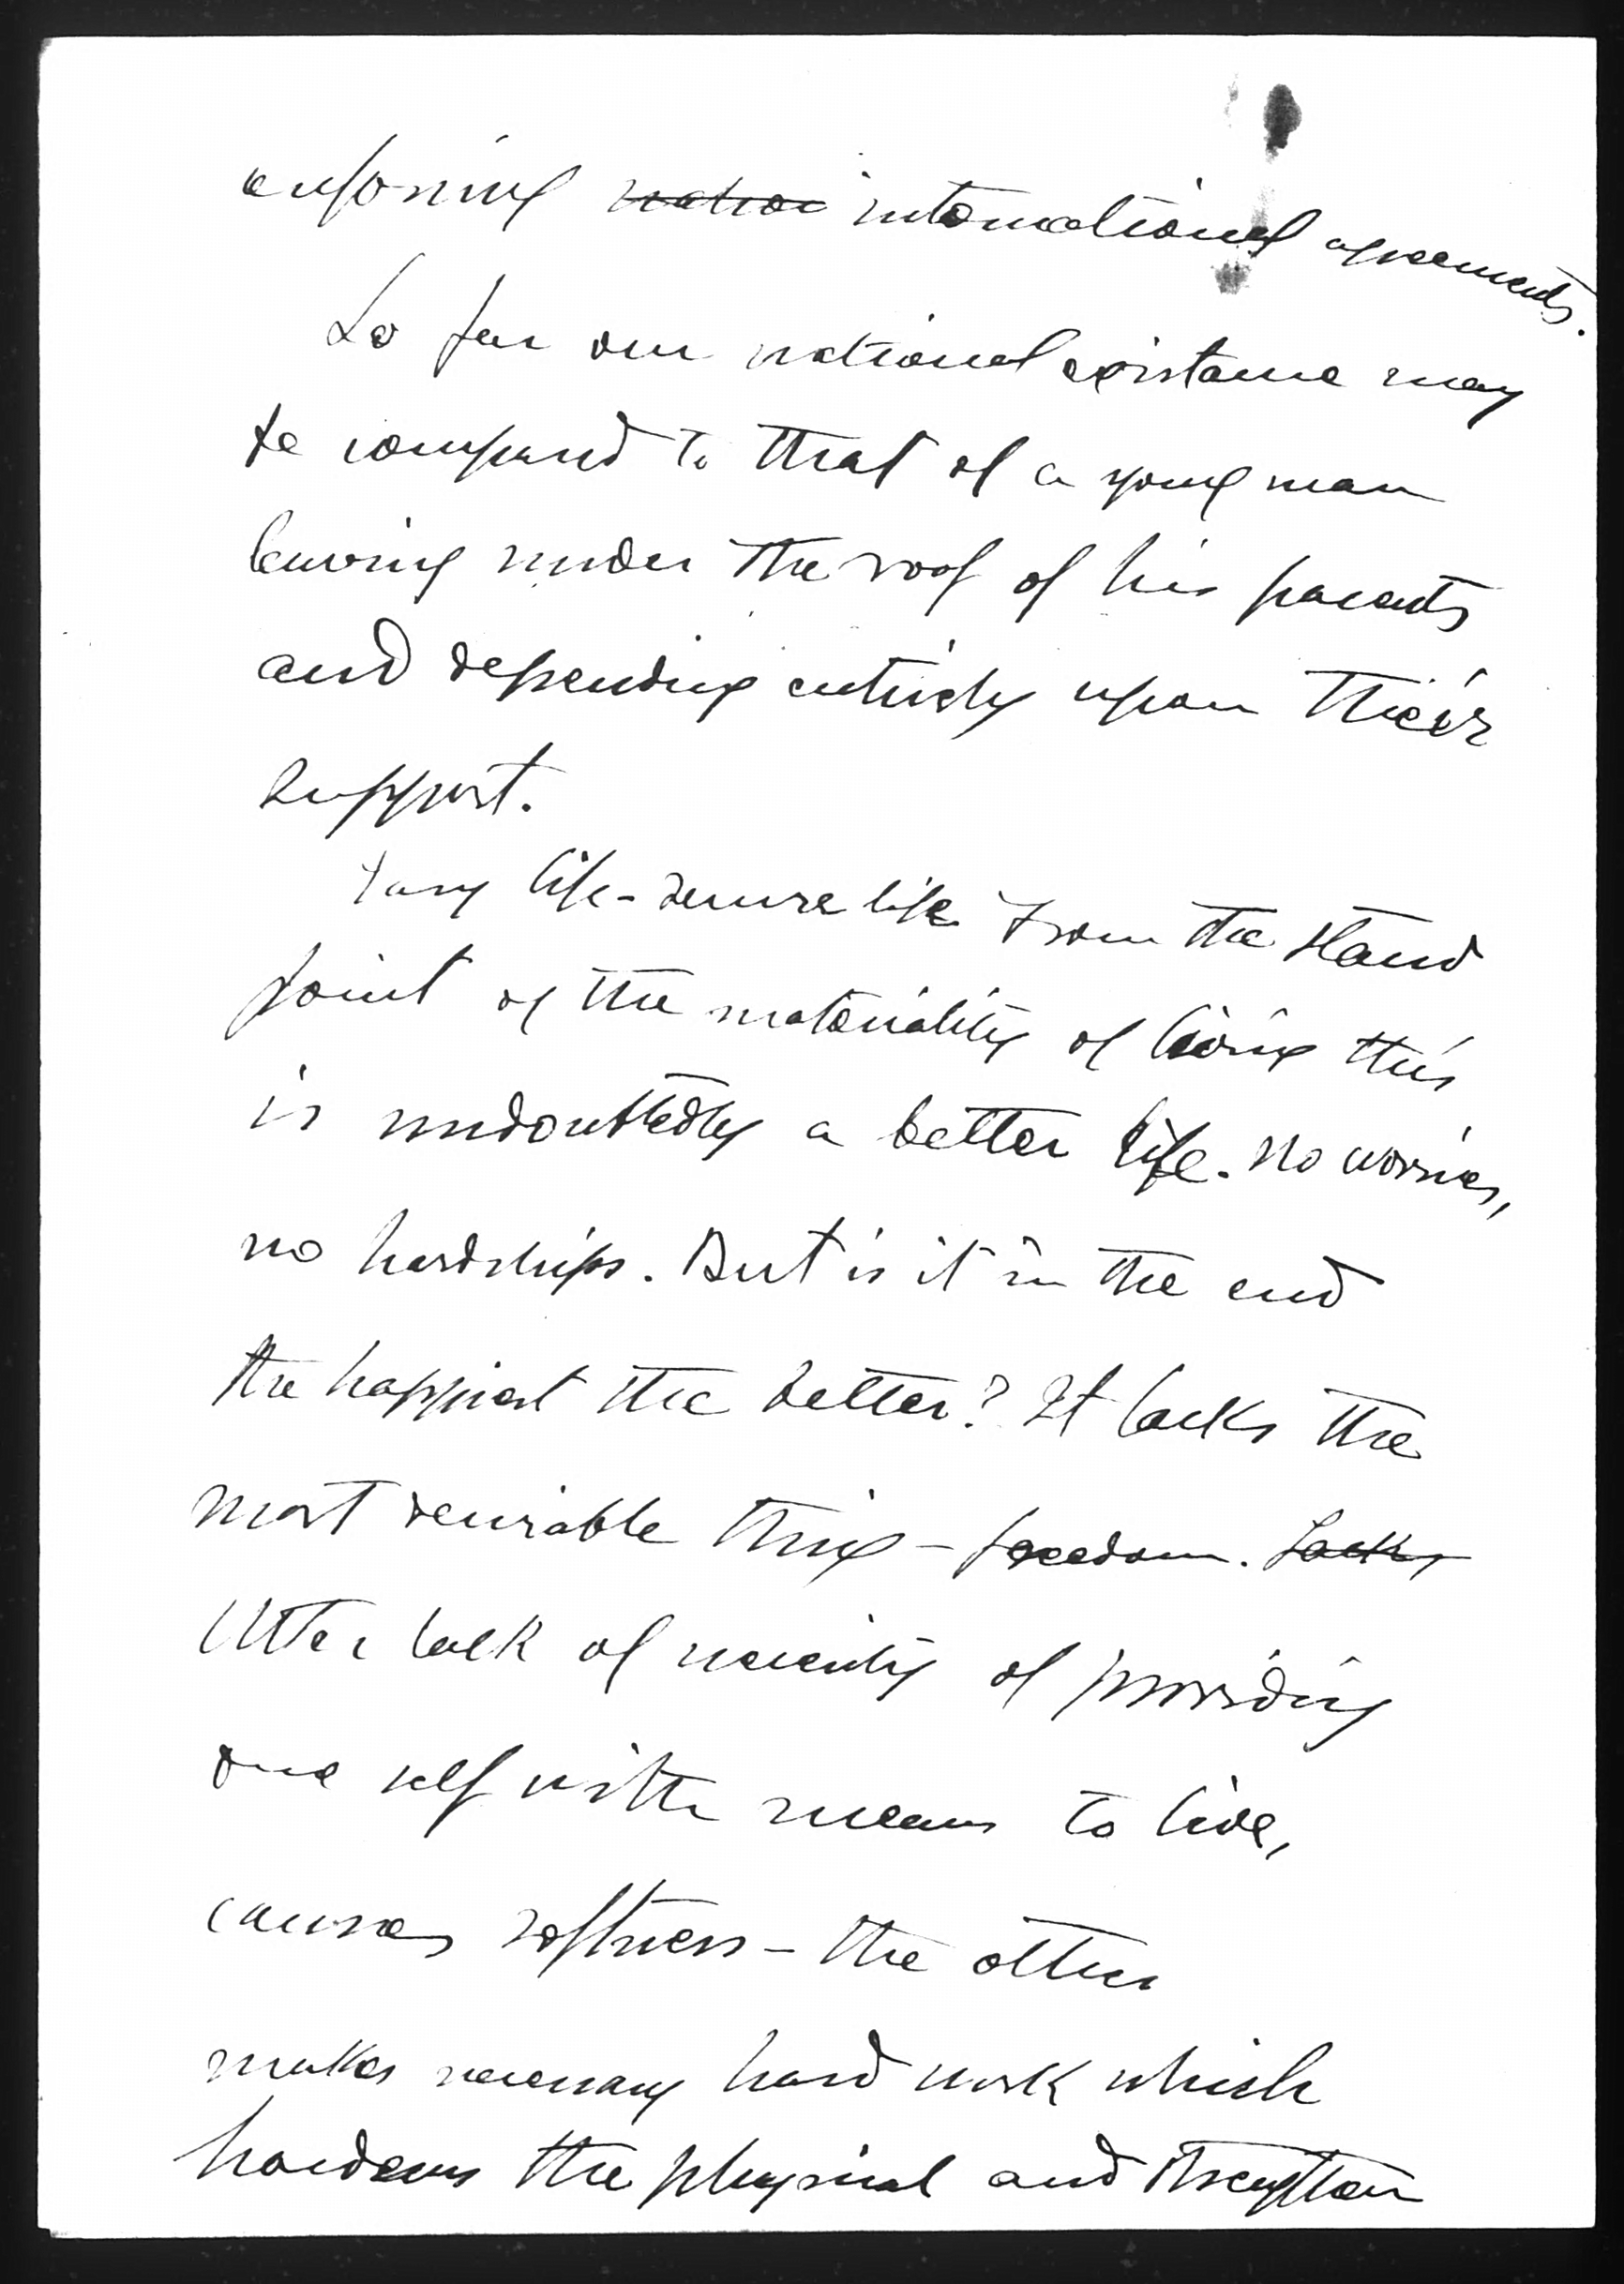 enforcing ~~nation~~ international agreements.
So far our national existance may
be compared to that of a young man
leaving under the roof of his parents
and depending entirely upon their
support.
Easy life - secure life From the stand
point of the materiality of living this
is undoubtedly a better life. No worries,
no hardships. But is it in the end
the happiest the better? It lacks the
most desirable thing - freedom. ~~Lacks~~
Utter lack of necesity of providing
one self with means to live,
causes softness - the other
makes necessary hard work which
hardens the physical and strengthen